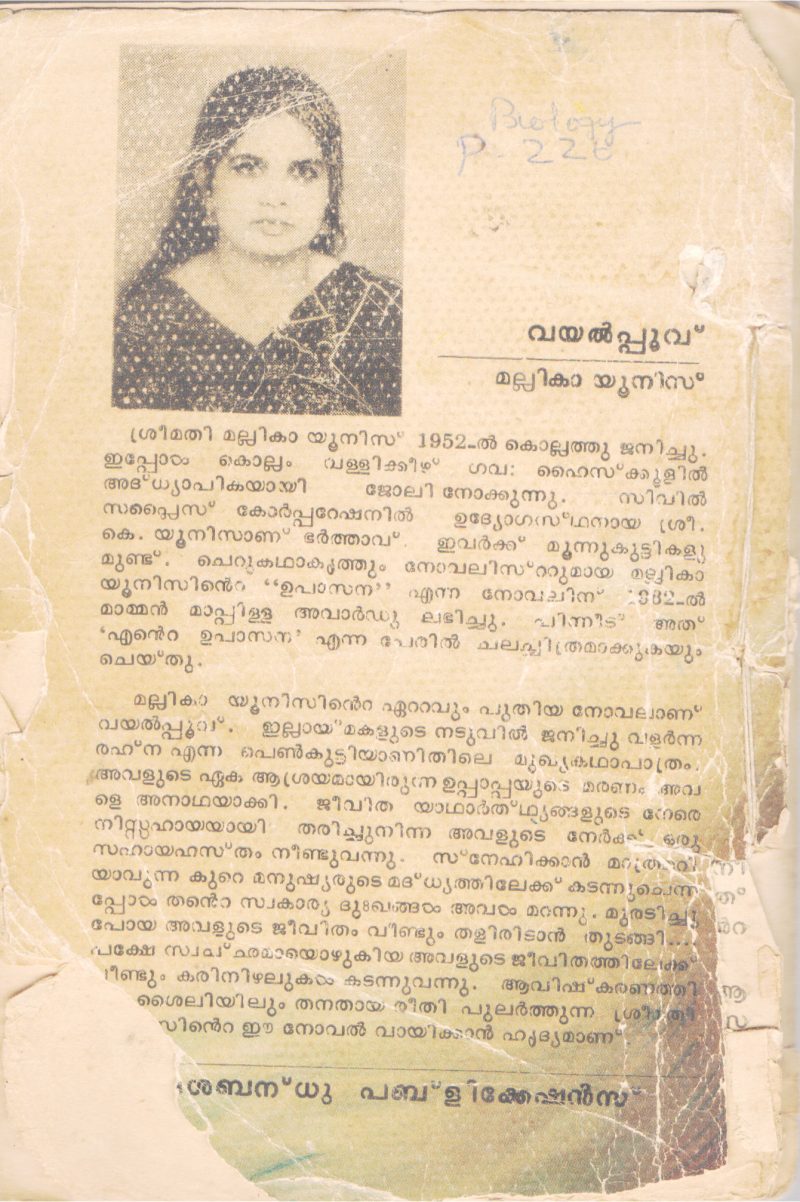 Biology
P. 226
വയൽപ്പൂവ്
മല്ലികാ യൂനിസ്
ശ്രീമതി മല്ലികാ യൂനിസ് 1952-ൽ കൊല്ലത്തു ജനിച്ചു.
ഇപ്പോൾ കൊല്ലം വള്ളിക്കീഴ് ഗവ: ഹൈസ്ക്കൂളിൽ
അദ്ധ്യാപികയായി ജോലി നോക്കുന്നു. സിവിൽ
സപ്ലൈസ് കോർപ്പറേഷനിൽ ഉദ്യോഗസ്ഥനായ ശ്രീ.
കെ. യൂനിസാണ് ഭർത്താവ്. ഇവർക്ക് മൂന്നുകുട്ടികളു
മുണ്ട്. ചെറുകഥാകൃത്തും നോവലിസ്ററുമായ മല്ലികാ
യൂനിസിൻെറ ‘‘ഉപാസന’’ എന്ന നോവലിന് 1982-ൽ
മാമ്മൻ മാപ്പിള്ള അവാർഡു ലഭിച്ചു. പിന്നീട് അത്
‘എൻെറ ഉപാസന’ എന്ന പേരിൽ ചലച്ചിത്രമാക്കുകയും
ചെയ്തു.
മല്ലികാ യൂനിസിൻെറ ഏററവും പുതിയ നോവലാണ്
വയൽപ്പൂവ്. ഇല്ലായ്മകളുടെ നടുവിൽ ജനിച്ചു വളർന്ന
രഹ്ന എന്ന പെൺകുട്ടിയാണിതിലെ മുഖ്യകഥാപാത്രം.
അവളുടെ ഏക ആശ്രയമായിരുന്ന ഉപ്പാപ്പയുടെ മരണം അവ
ളെ അനാഥയാക്കി. ജീവിത യാഥാർത്ഥ്യങ്ങളുടെ നേരെ
നിസ്സഹായയായി തരിച്ചുനിന്ന അവളുടെ നേർക്ക് ഒരു
സഹായഹസ്തം നീണ്ടുവന്നു. സ്നേഹിക്കാൻ മാത്രമറി
യാവുന്ന കുറെ മനുഷ്യരുടെ മദ്ധ്യത്തിലേക്ക് കടന്നുചെന്ന
പ്പോൾ തൻെറ സ്വകാര്യ ദുഃഖങ്ങൾ അവൾ മറന്നു. മുരടിച്ചു
പോയ അവളുടെ ജീവിതം വീണ്ടും തളിരിടാൻ തുടങ്ങി....
പക്ഷേ സ്വച്ഛമായൊഴുകിയ അവളുടെ ജീവിതത്തിലേക്ക്
വീണ്ടും കരിനിഴലുകൾ കടന്നുവന്നു. ആവിഷ്കരണത്തി
ശൈലിയിലും തനതായ രീതി പുലർത്തുന്ന ശ്രീമതി
സിൻെറ ഈ നോവൽ വായിക്കാൻ ഹൃദ്യമാണ്.
ശബന്ധു പബ്ളിക്കേഷൻസ്